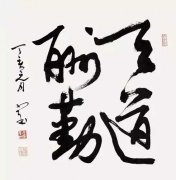 天道
酬勤
丁亥元月